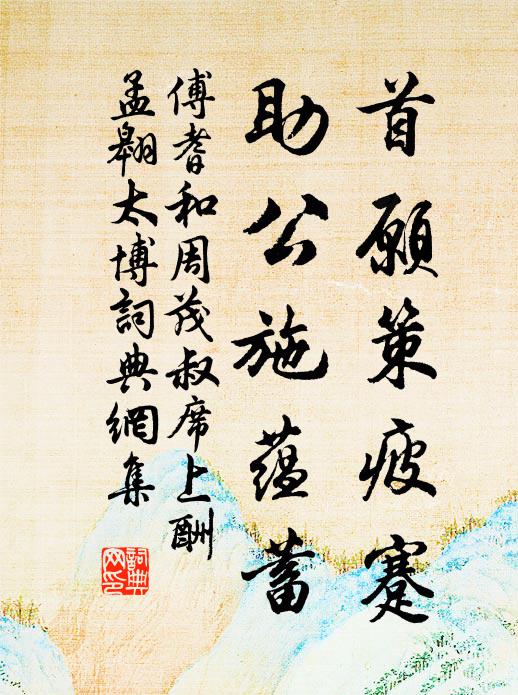 首願策疲蹇
助公施蘊蓄
傅耆和周茂叔席上酬
孟翱太博詞典網集
詞典网印